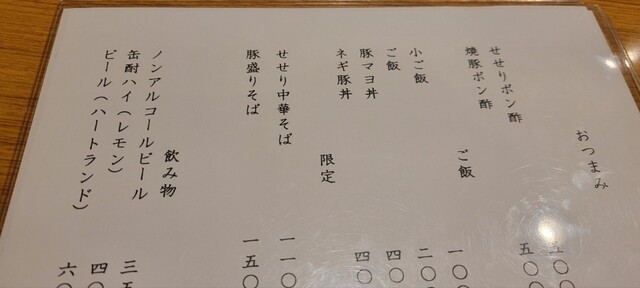 おつまみ
せせりポン酢 五〇〇
焼豚ポン酢 五〇
ご飯
小ご飯 一〇
ご飯 二〇
豚マヨ丼 四〇
ネギ豚丼 四〇
限定
せせり中華そば 一一〇
豚盛りそば 一五〇
飲み物
ノンアルコールビール 三五
缶酎ハイ(レモン) 四〇
ビール(ハートランド) 六〇